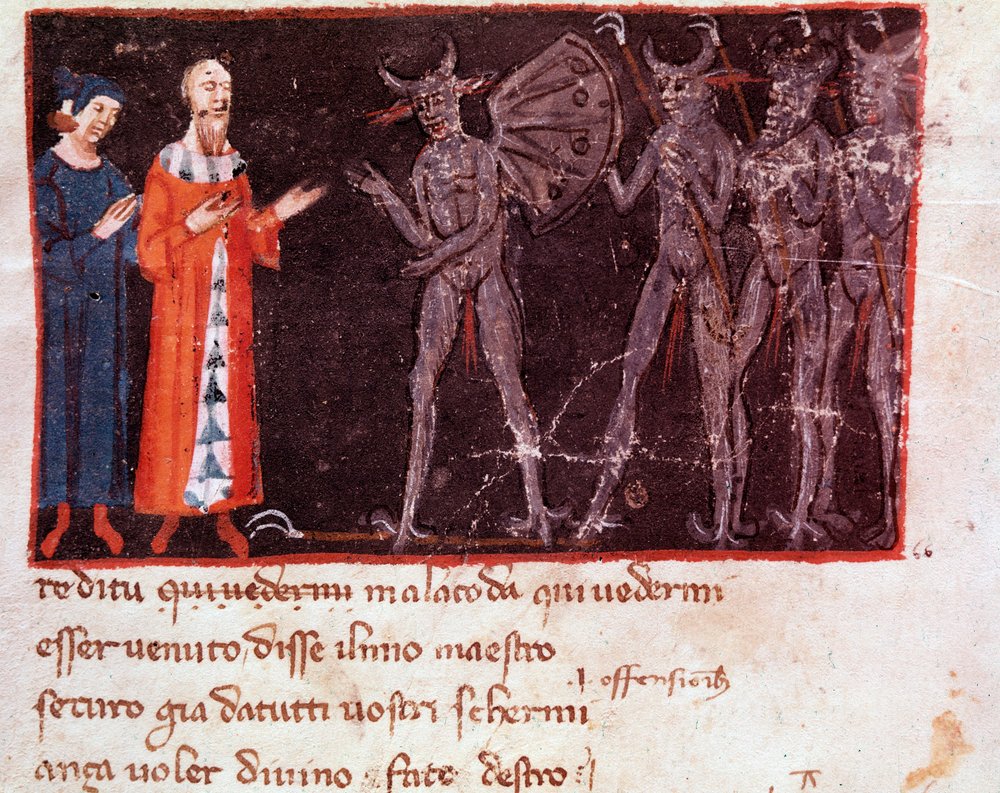 66
credi tu qui vedermi malacoda qui vedermi
esser venuto disse il mio maestro
.i. offensionib
securo gia da tutti vostri schermi
sança voler divino fato destro